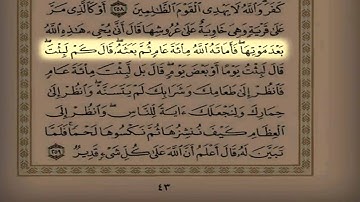 كَفَرَ ۗ وَاللَّهُ لَا يَهْدِي الْقَوْمَ الظَّالِمِينَ ﴿٢٥٨﴾ أَوْ كَالَّذِي مَرَّ
عَلَىٰ قَرْيَةٍ وَهِيَ خَاوِيَةٌ عَلَىٰ عُرُوشِهَا قَالَ أَنَّىٰ يُحْيِي هَٰذِهِ اللَّهُ
بَعْدَ مَوْتِهَا ۖ فَأَمَاتَهُ اللَّهُ مِائَةَ عَامٍ ثُمَّ بَعَثَهُ ۖ قَالَ كَمْ لَبِثْتَ ۖ
قَالَ لَبِثْتُ يَوْمًا أَوْ بَعْضَ يَوْمٍ ۖ قَالَ بَل لَّبِثْتَ مِائَةَ عَامٍ
فَانظُرْ إِلَىٰ طَعَامِكَ وَشَرَابِكَ لَمْ يَتَسَنَّهْ ۖ وَانظُرْ إِلَىٰ
حِمَارِكَ وَلِنَجْعَلَكَ آيَةً لِّلنَّاسِ ۖ وَانظُرْ إِلَى
الْعِظَامِ كَيْفَ نُنشِزُهَا ثُمَّ نَكْسُوهَا لَحْمًا ۚ فَلَمَّا
تَبَيَّنَ لَهُ قَالَ أَعْلَمُ أَنَّ اللَّهَ عَلَىٰ كُلِّ شَيْءٍ قَدِيرٌ ﴿٢٥٩﴾
٤٣